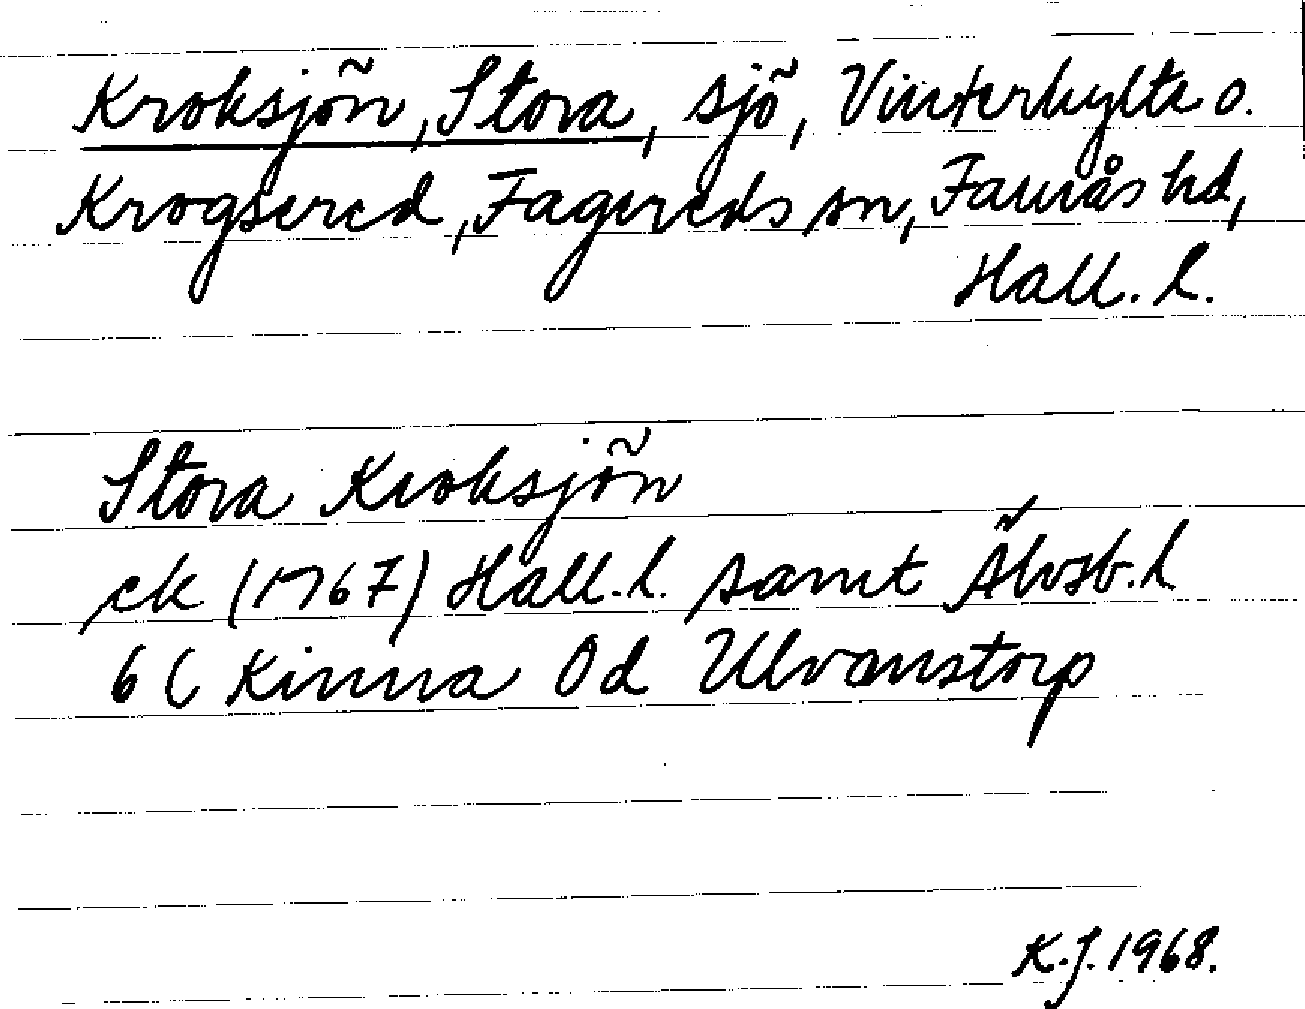 Kroksjön, Stora, sjö, Vinterhylte o.
Krogsered, Fagereds sn, Faurås hd,
Hall. l.
Stora Kroksjön
ek (1767) Hall. l. samt Älvsb. l
6 C Kinna 0d Ulvanstorp
K.J. 1968.